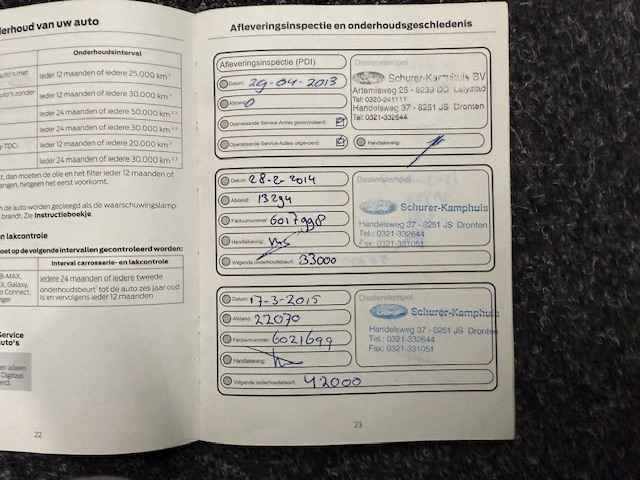 derhoud van uw auto
Onderhoudsinterval
Ieder 12 maanden of iedere 25.000 km
Ieder 12 maanden of iedere 30.000 km
Ieder 24 maanden of iedere 50.000 km
Ieder 24 maanden of iedere 30.000 km
TDCi
Ieder 12 maanden of iedere 20.000 km
Ieder 24 maanden of iedere 30.000 km
dan moeten de olie en het filter ieder 12 maanden of
hetgeen het eerst voorkomt.
de auto worden gereset als de waarschuwingslamp
brandt. Zie Instructieboekje.
lakcontrole
op de volgende intervallen gecontroleerd worden:
Interval carrosserie- en lakcontrole
B-MAX,
Galaxy,
Connect,
iedere 24 maanden of iedere tweede
onderhoudsbeurt tot de auto zes jaar oud
is en vervolgens ieder 12 maanden
Service
auto's
alleen
Digitaal
22
Afleveringsinspectie en onderhoudsgeschiedenis
Afleveringsinspectie (PDI)
Datum: 29-04-2013
Afstand: 0
Openstaande Service Acties gecontroleerd
Openstaande Service Acties uitgevoerd
Dealerstempel
Schurer-Kamphuis BV
Artemisweg 25 - 8239 DD Lelystad
Tel: 0320-241111
Handelsweg 37 - 8251 JS Dronten
Tel: 0321-332644
Handtekening:
Datum: 28-2-2014
Afstand: 13294
Factuurnummer: 6017998
Handtekening:
Volgende onderhoudsbeurt: 33000
Dealerstempel
Schurer-Kamphuis
Handelsweg 37 - 8251 JS Dronten
Tel.: 0321-332644
Fax: 0321-331051
Datum: 17-3-2015
Afstand: 22070
Factuurnummer: 6021699
Handtekening:
Volgende onderhoudsbeurt: 42000
Dealerstempel
Schurer-Kamphuis
Handelsweg 37 - 8251 JS Dronten
Tel.: 0321-332644
Fax: 0321-331051
23